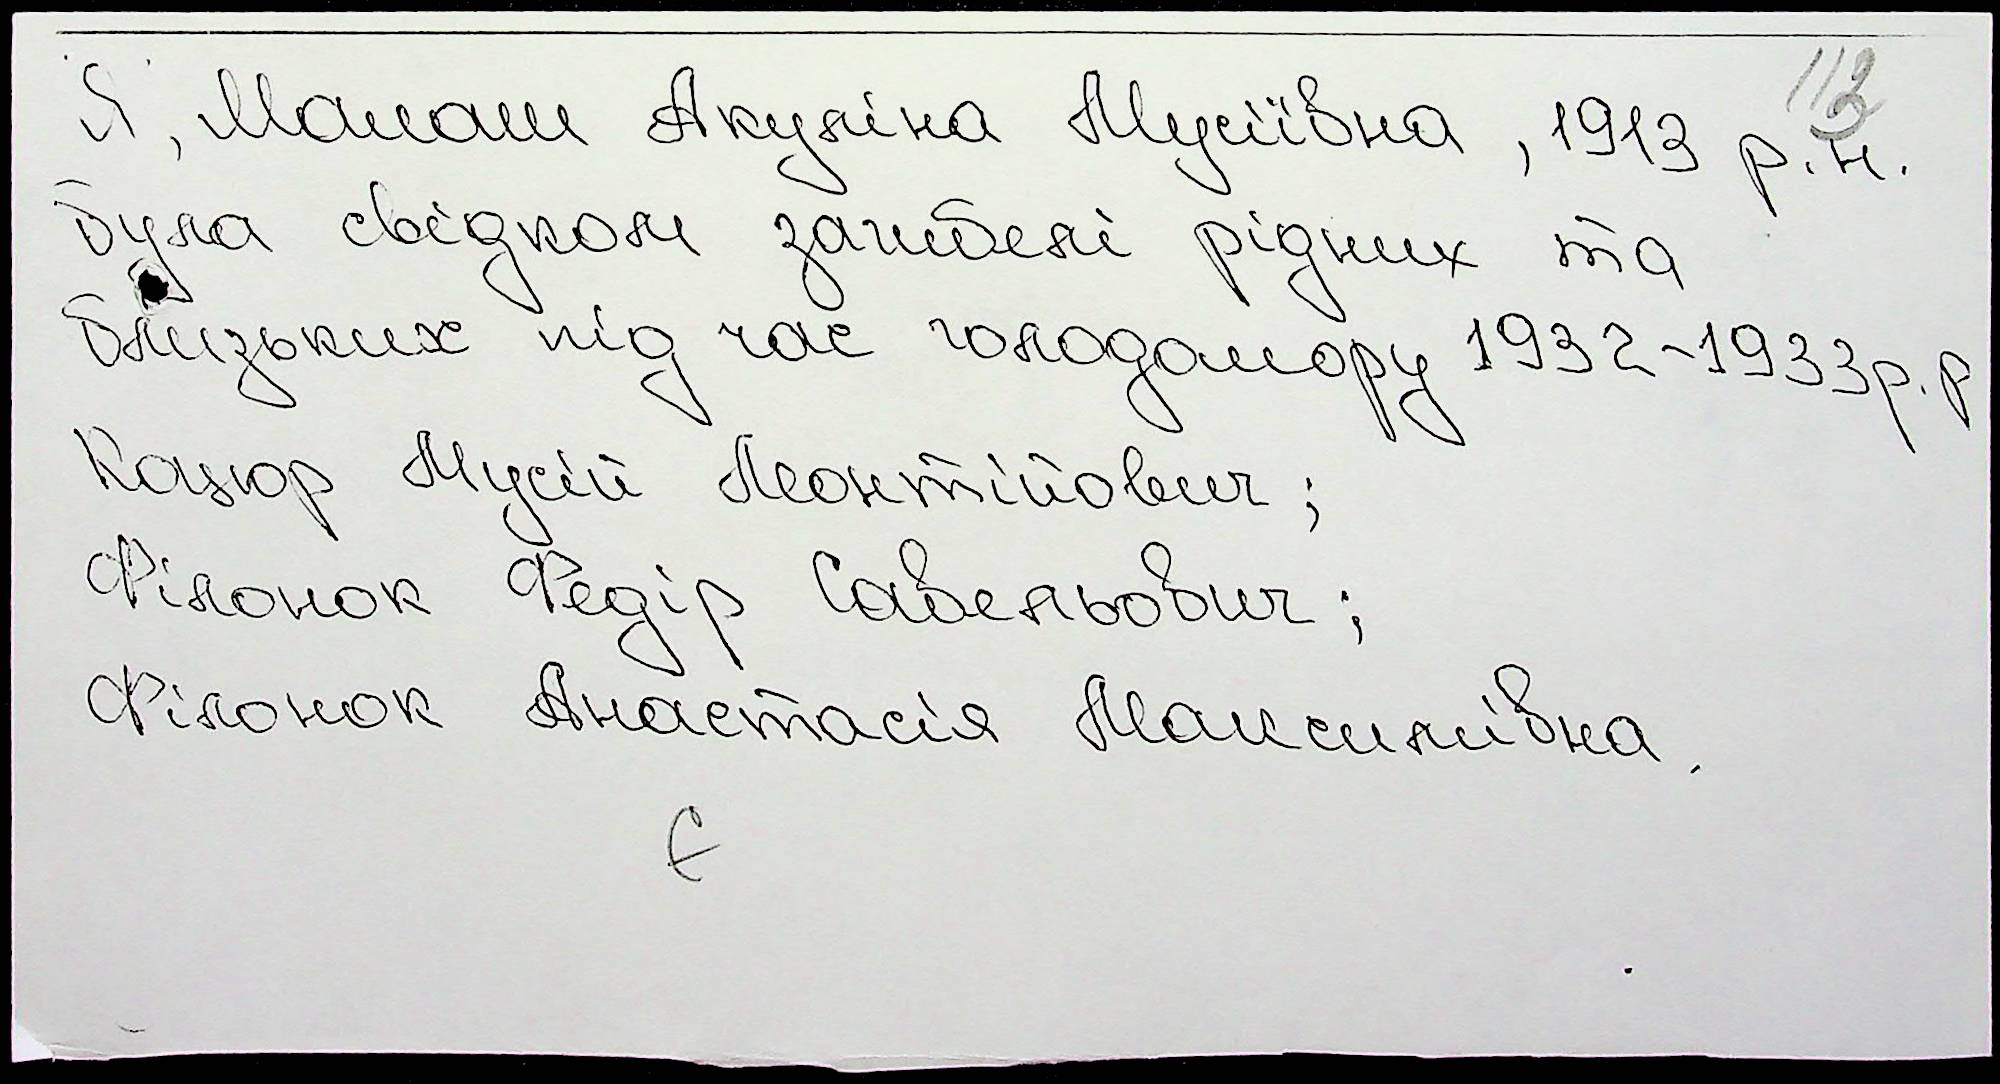 112
Я, Малаш Акуліна Мусіївна, 1913 р.н.
була свідком загибелі рідних та
близьких під час голодомору 1932-1933р.р
Кацюр Мусій Леонтійович;
Філонок Федір Савельович;
Філонок Анастасія Максимівна.
Є